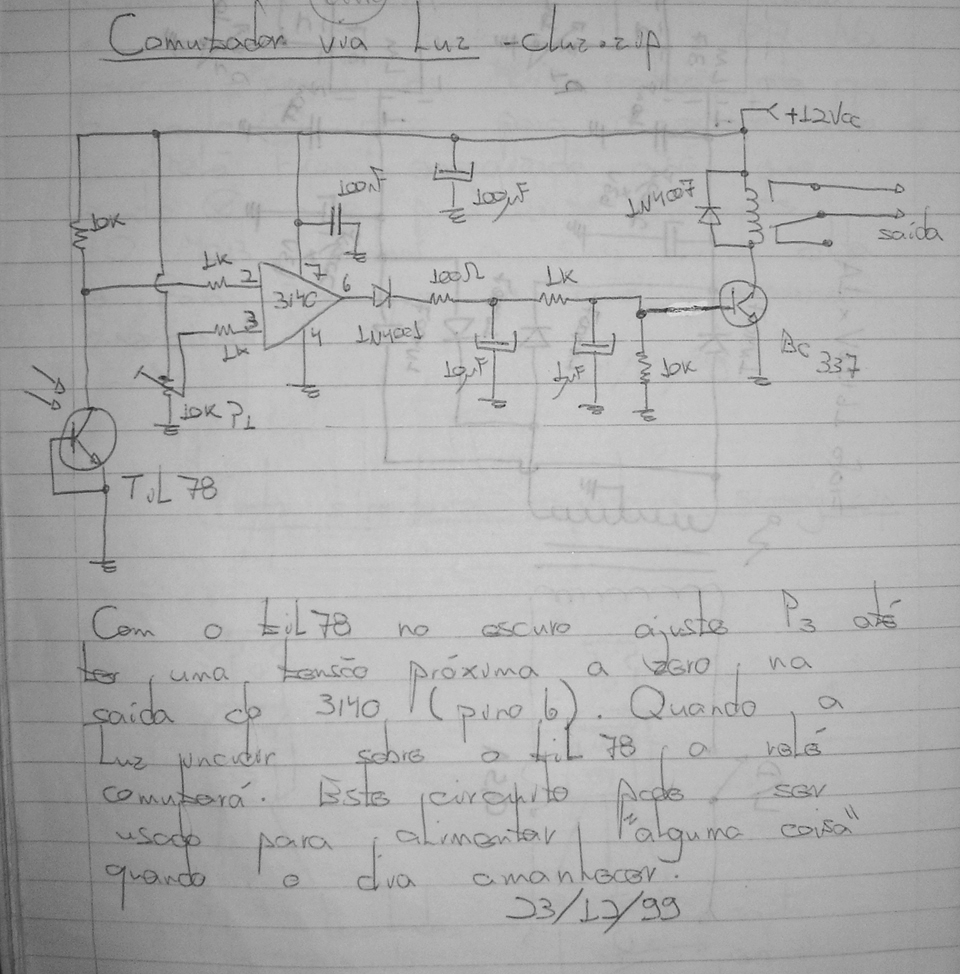 Comutador via Luz - cluz.zip
+12Vcc
100nF
100µF
1N4007
10K
saída
1K
2
7
3140
6
100Ω
1K
3
4
1N4001
1K
10µF
1µF
10K
BC
337
10K P1
TiL 78
Com o til 78 no escuro ajuste P3 até
ter uma tensão próxima a zero na
saída do 3140 (pino 6). Quando a
Luz incidir sobre o til 78, a relé
comutará. Este circuito pode ser
usado para alimentar "alguma coisa"
quando o dia amanhecer.
23/12/99